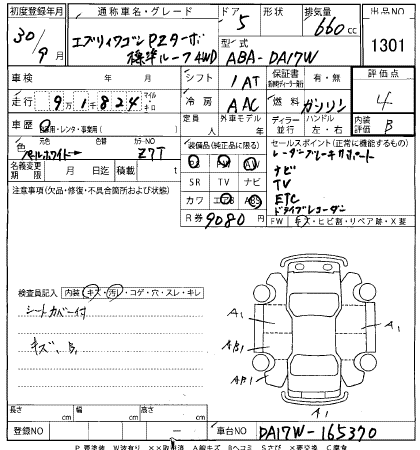 初度登録年月 通称車名・グレード ドア 形状 排気量 出品NO
30/9月 エブリィワゴン PZターボ 標準ルーフ 4WD 5 660cc 1301
型式 ABA-DA17W
車検 年 月 シフト 1AT 保証書 有・無 評価点 4
走行 9万1千824 マイル キロ 冷房 AAC 燃料 ガソリン
車歴 自家用・レンタ・事業用( ) 定員 人 外車モデル 年 ディーラー 並行 ハンドル 左・右 内装評価 B
色 元色 パールホワイト→ 色替 カラーNO Z7T
装備品(純正品に限る) セールスポイント(正常に機能するもの)
PS PW AW
SR TV ナビ
カワ エアB ABS
レーダーブレーキサポート
ナビ
TV
ETC
ドライブレコーダー
名義変更期限 月 日迄 積載 t
R券 9080 円
FW キズ・ヒビ割・リペア跡・X要
注意事項(欠品・修復・不具合箇所および状態)
検査員記入 内装 キズ・汚・コゲ・穴・スレ・キレ
シートカバー付
キズ、B
A1 A1
AB1 AB1
AB1 A1
A1
長さ cm 幅 cm 高さ cm
登録NO ー 車台NO DA17W-165370
P要塗装 W波有り ××取替済 A線キズ Bヘコミ Sさび ×要交換 C腐食